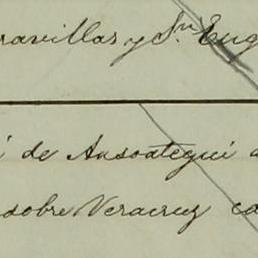 ravillas y Sn Eug
i de Ansoategui a
sobre Veracruz ca